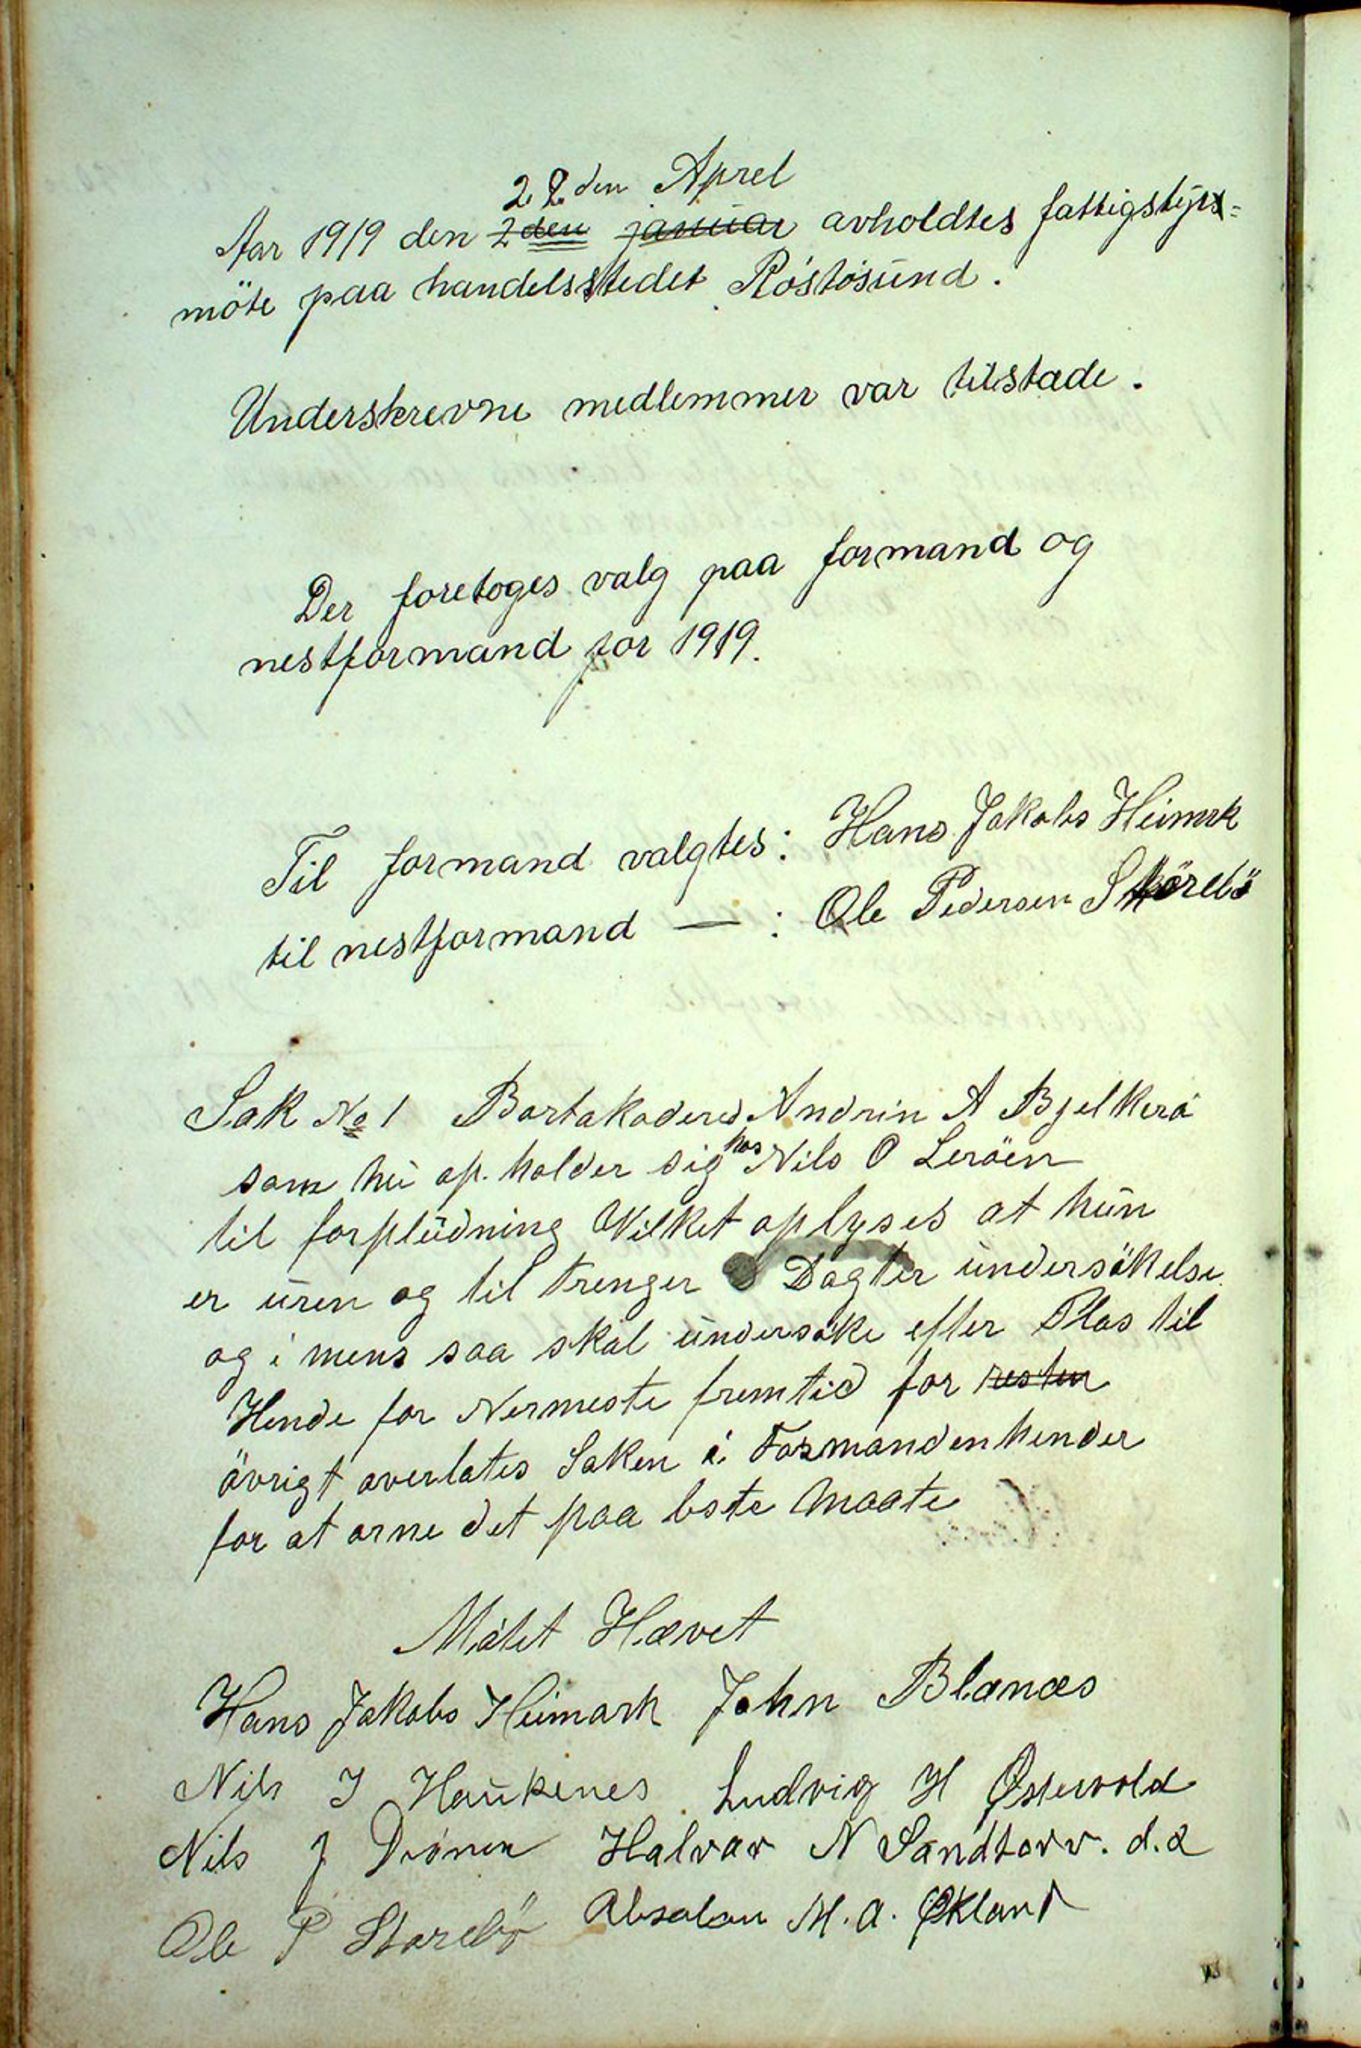 22 den Aprel
Aar 1919 den 2 den januar avholdtes fattigstyrs-
möte paa handelsstedet Röstösund.
Underskrevne medlemmer var tilstade.
Der foretoges valg paa formand og
nestformand for 1919.
Til formand valgtes: Hans Jakobs Heimark
til nestformand — : Ole Pedersen Storebö
Sak No 1 Bortakodered Andrin A Bjelkerö
som nu op. holder sig hos Nils O Leröen
til forpleidning Vilket oplyses at hun
er uren og til trenger Dagter undersökelse
og i mens saa skal undersöke efter Plas til
Hende for Nermeste fremtid for resten
övrigt overlates Saken i Formanden hender
for at orne det paa beste Maate
Mötet Hævet
Hans Jakobs Heimark John Blænæs
Nils J Haukenes Ludvig H Østervold
Nils J Drönen Halvar N Sandtorv. d.a
Ole P Storebø Absalon M. A. Økland